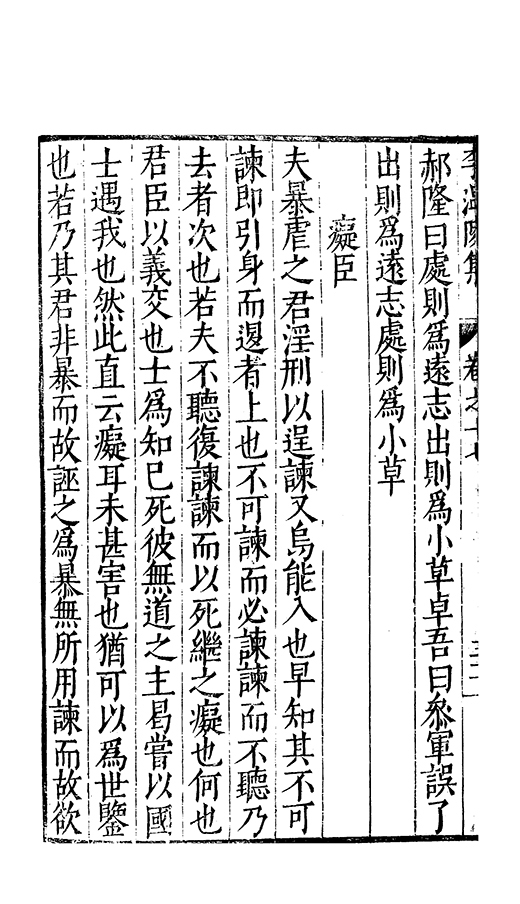 李溫陵集 卷之十七
郝隆曰處則爲遠志出則爲小草卓吾曰叅軍誤了
出則爲遠志處則爲小草
癡臣
夫暴虐之君淫刑以逞諫又烏能入也早知其不可
諫即引身而退者上也不可諫而必諫諫而不聽乃
去者次也若夫不聽復諫諫而以死繼之癡也何也
君臣以義交也士爲知已死彼無道之主曷嘗以國
士遇我也然此直云癡耳未甚害也猶可以爲世鑒
也若乃其君非暴而故誣之爲暴無所用諫而故欲